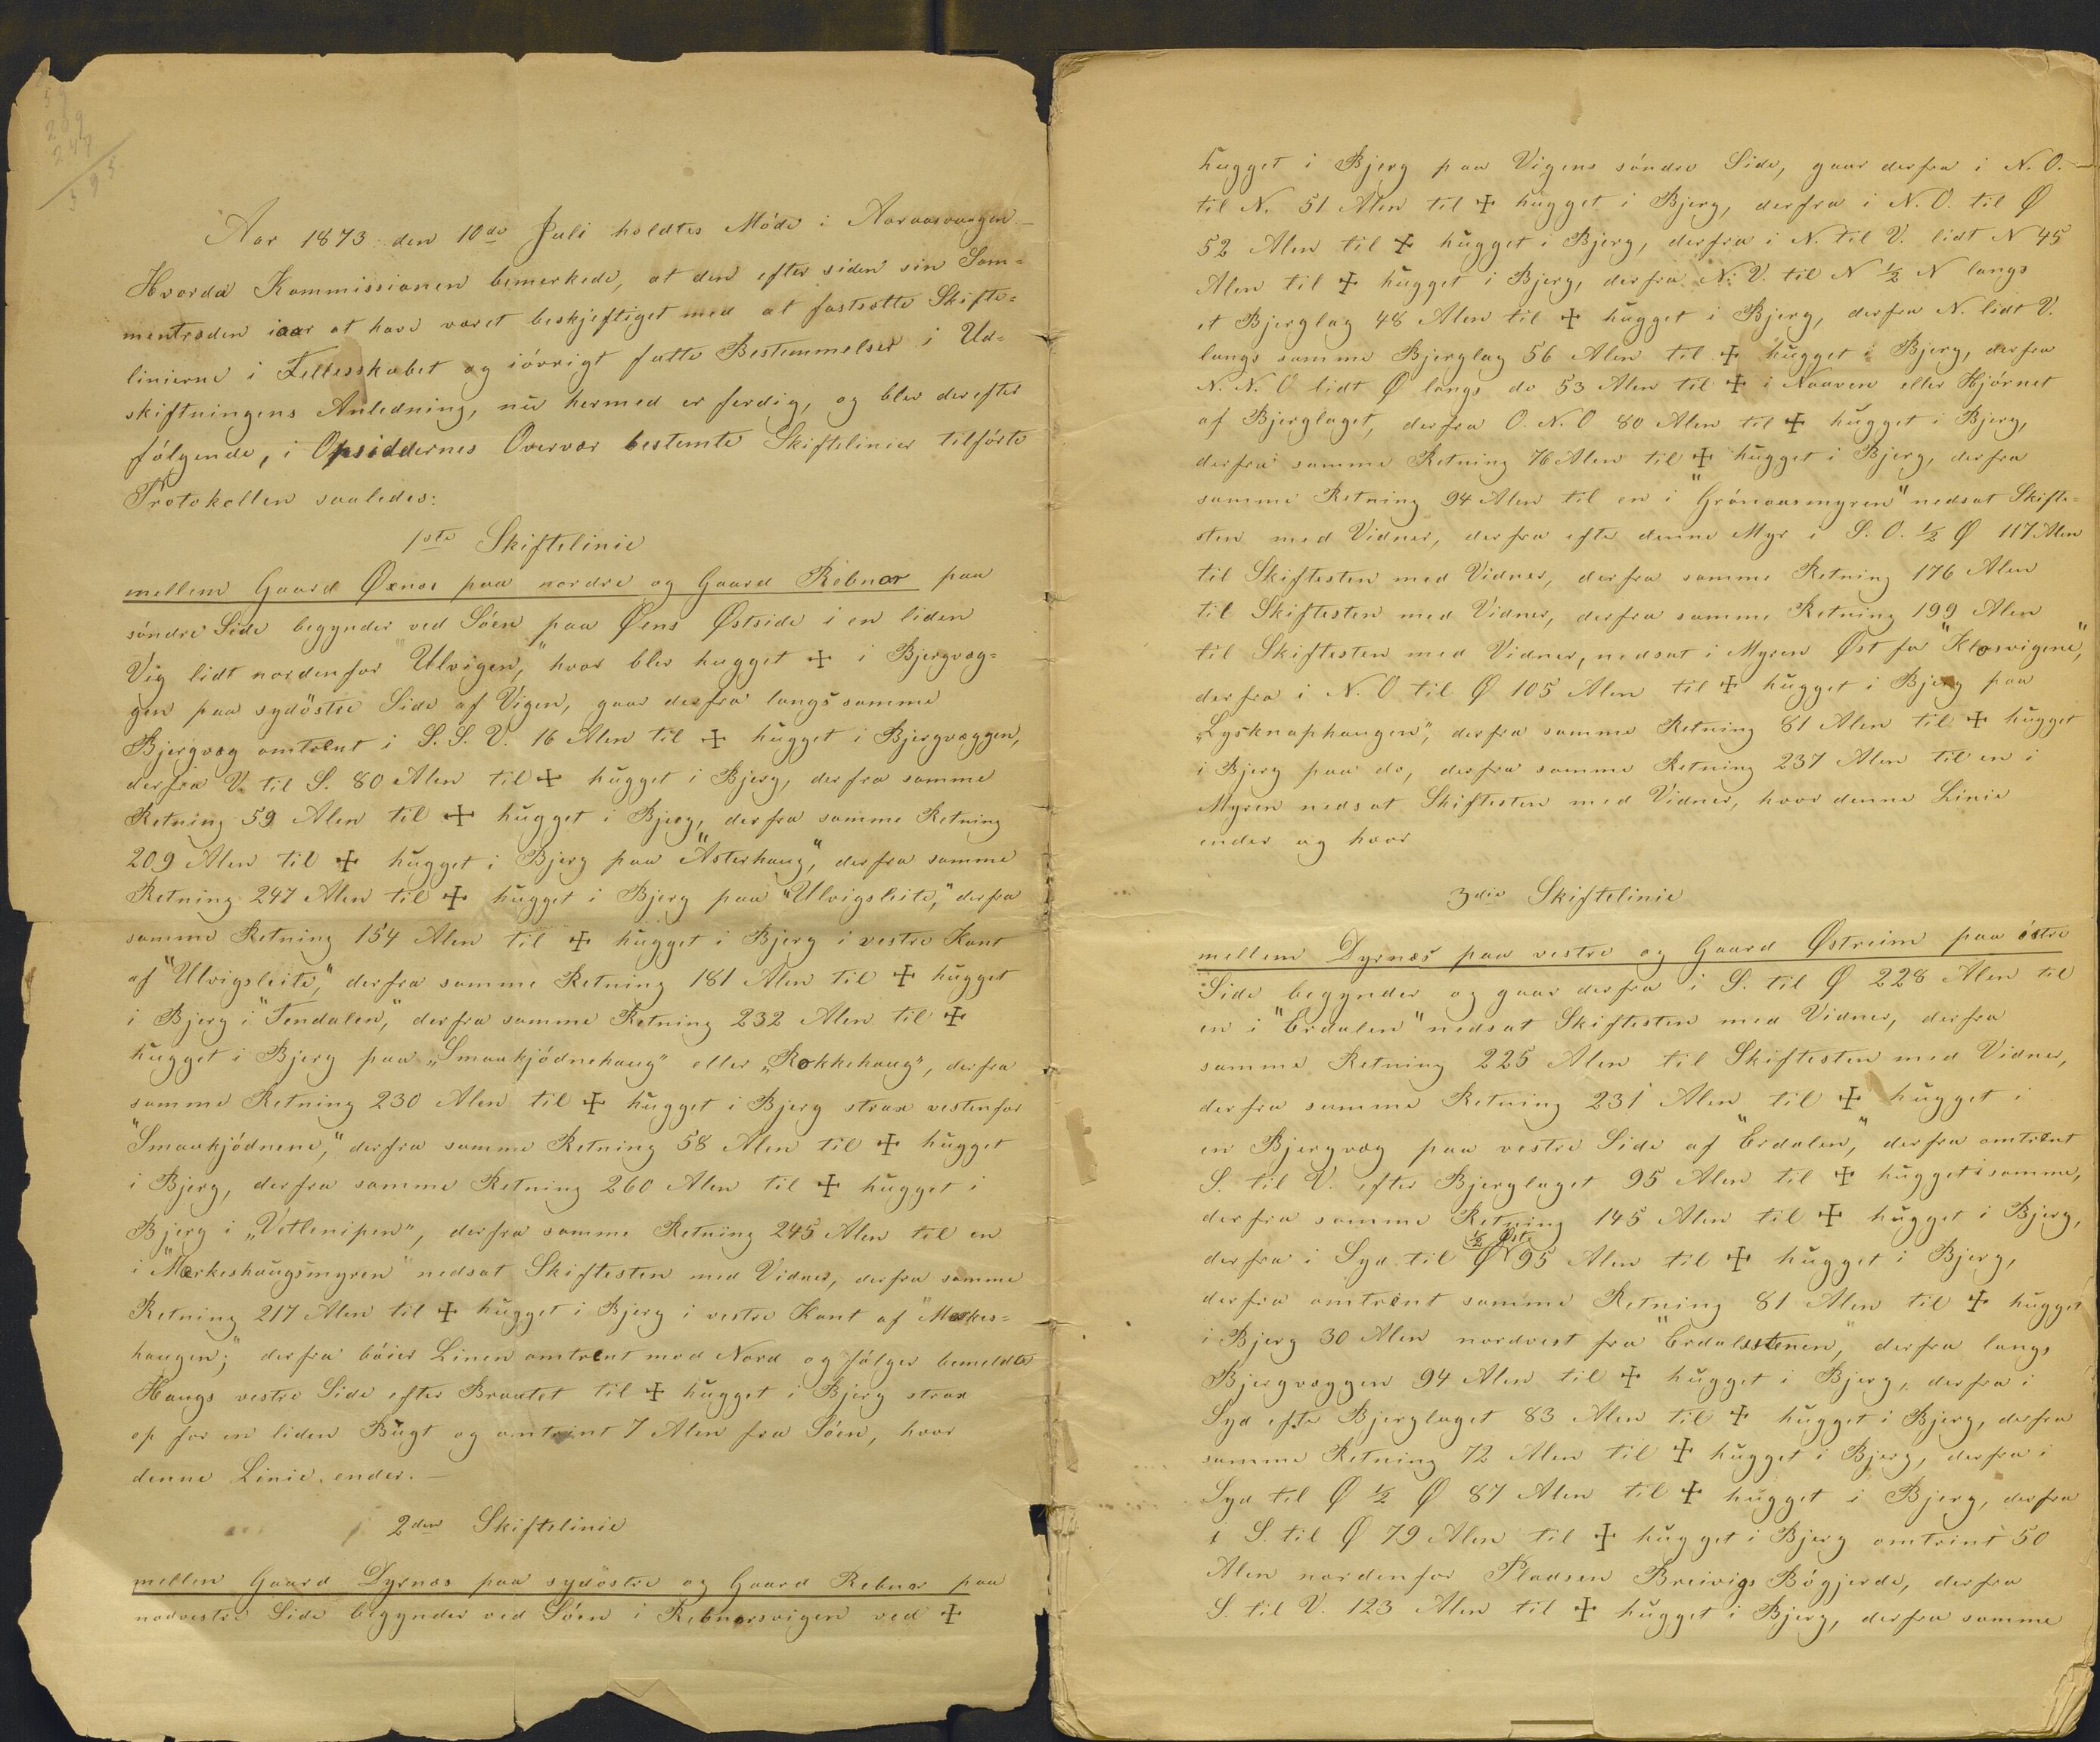 59
289
247
395
Aar 1873 den 10de Juli holdtes Möde i Aaraasvaagen –
Hvorda Kommissionen bemerkede, at den efter siden sin Sam=
mentræden iaar at have været beskjeftiget med at fastsætte Skifte=
linierne i Fellesskabet og iövrigt fatte Bestemmelser i Ud=
skiftningens Anledning, nu hermed er ferdig, og blev derefter
fölgende, i Opsiddernes Overvær bestemte Skiftelinier tilförte
Protokollen saaledes:
1ste Skiftelinie
mellem Gaard Øxnæs paa nordre og Gaard Rebnor paa
söndre Side begynder ved Söen paa Øens Østside i en liden
Vig lidt nordenfor "Ulvigen," hvor blev hugget ☩ i Bjergvæg=
gen paa sydöstre Side af Vigen, gaar derfra langs samme
Bjergvæg omtrent i S. S. V. 16 Alen til ☩ hugget i Bjergvæggen,
derfra V. til S. 80 Alen til ☩ hugget i Bjerg, derfra samme
Retning 59 Alen til ☩ hugget i Bjerg, derfra samme Retning
209 Alen til ☩ hugget i Bjerg paa "Asterhaug", derfra samme
Retning 247 Alen til ☩ hugget i Bjerg paa "Ulvigsleite," derfra
samme Retning 154 Alen til ☩ hugget i Bjerg i vestre Kant
af "Ulvigsleite," derfra samme Retning 181 Alen til ☩ hugget
i Bjerg i "Tendalen", derfra samme Retning 232 Alen til ☩
hugget i Bjerg paa „Smaakjödnehaug" eller „Rokkehaug", derfra
samme Retning 230 Alen til ☩ hugget i Bjerg strax vestenfor
"Smaakjödnene," derfra samme Retning 58 Alen til ☩ hugget
i Bjerg, derfra samme Retning 260 Alen til ☩ hugget i
Bjerg i „Vetlenipen", derfra samme Retning 245 Alen til en
i "Mærkeshaugsmyren" nedsat Skiftesten med Vidner, derfra samme
Retning 217 Alen til ☩ hugget i Bjerg i vestre Kant af "Mærkes=
haugen;" derfra böier Linen omtrent mod Nord og fölger bemeldte
Haugs vestre Side efter Braatet til ☩ hugget i Bjerg strax
op for en liden Bugt og omtrent 7 Alen fra Söen, hvor
denne Linie ender. –
2den Skiftelinie
mellem Gaard Dyrnæs paa sydöstre og Gaard Rebnor paa
nordvestre Side begynder ved Söen i Rebnorsvigen ved ☩
hugget i Bjerg paa Vigens söndre Side, gaar derfra i N. O. –
til N. 51 Alen til ☩ hugget i Bjerg, derfra i N. O. til Ø
52 Alen til ☩ hugget i Bjerg, derfra i N. til V. lidt N 45
Alen til ☩ hugget i Bjerg, derfra N. V. til N ½ N langs
et Bjerglag 48 Alen til ☩ hugget i Bjerg, derfra N. lidt V.
langs samme Bjerglag 56 Alen til ☩ hugget i Bjerg, derfra
N. N. O lidt Ø langs do 53 Alen til ☩ i Naaven eller Hjörnet
af Bjerglaget, derfra O. N. O 80 Alen til ☩ hugget i Bjerg,
derfra samme Retning 76 Alen til ☩ hugget i Bjerg, derfra
samme Retning 94 Alen til en i "Grönaasmyren" nedsat Skifte=
sten med Vidner, derfra efter denne Myr i S. O. ½ Ø 117 Alen
til Skiftesten med Vidner, derfra samme Retning 176 Alen
til Skiftesten med Vidner, derfra samme Retning 199 Alen
til Skiftesten med Vidner, nedsat i Myren Øst for "Klosvigene",
derfra i N. O til Ø 105 Alen til ☩ hugget i Bjerg paa
„Lysknaphaugen", derfra samme Retning 81 Alen til ☩ hugget
i Bjerg paa do, derfra samme Retning 237 Alen til en i
Myren nedsat Skiftesten med Vidner, hvor denne Linie
ender og hvor
3die Skiftelinie
mellem Dyrnæs paa vestre og Gaard Østreim paa östre
Side begynder og gaar derfra i S. til Ø 228 Alen til
en i "Erdalen" nedsat Skiftesten med Vidner, derfra
samme Retning 225 Alen til Skiftesten med Vidner,
derfra samme Retning 231 Alen til ☩ hugget i
en Bjergvæg paa vestre Side af "Erdalen," derfra omtrent
S. til V. efter Bjerglaget 95 Alen til ☩ hugget i samme,
derfra samme Retning 145 Alen til ☩ hugget i Bjerg,
½ Øst
derfra i Syd til Ø 95 Alen til ☩ hugget i Bjerg,
derfra omtrent samme Retning 81 Alen til ☩ hugget
i Bjerg 30 Alen nordvest fra "Erdalsstenen," derfra langs
Bjergvæggen 94 Alen til ☩ hugget i Bjerg, derfra i
Syd efter Bjerglaget 83 Alen til ☩ hugget i Bjerg, derfra
samme Retning 72 Alen til ☩ hugget i Bjerg, derfra i
Syd til Ø ½ Ø 87 Alen til ☩ hugget i Bjerg, derfra
i S. til Ø 79 Alen til ☩ hugget i Bjerg omtrent 50
Alen nordenfor Pladsen Breivigs Bögjerde, derfra
S. til V. 123 Alen til ☩ hugget i Bjerg, derfra samme